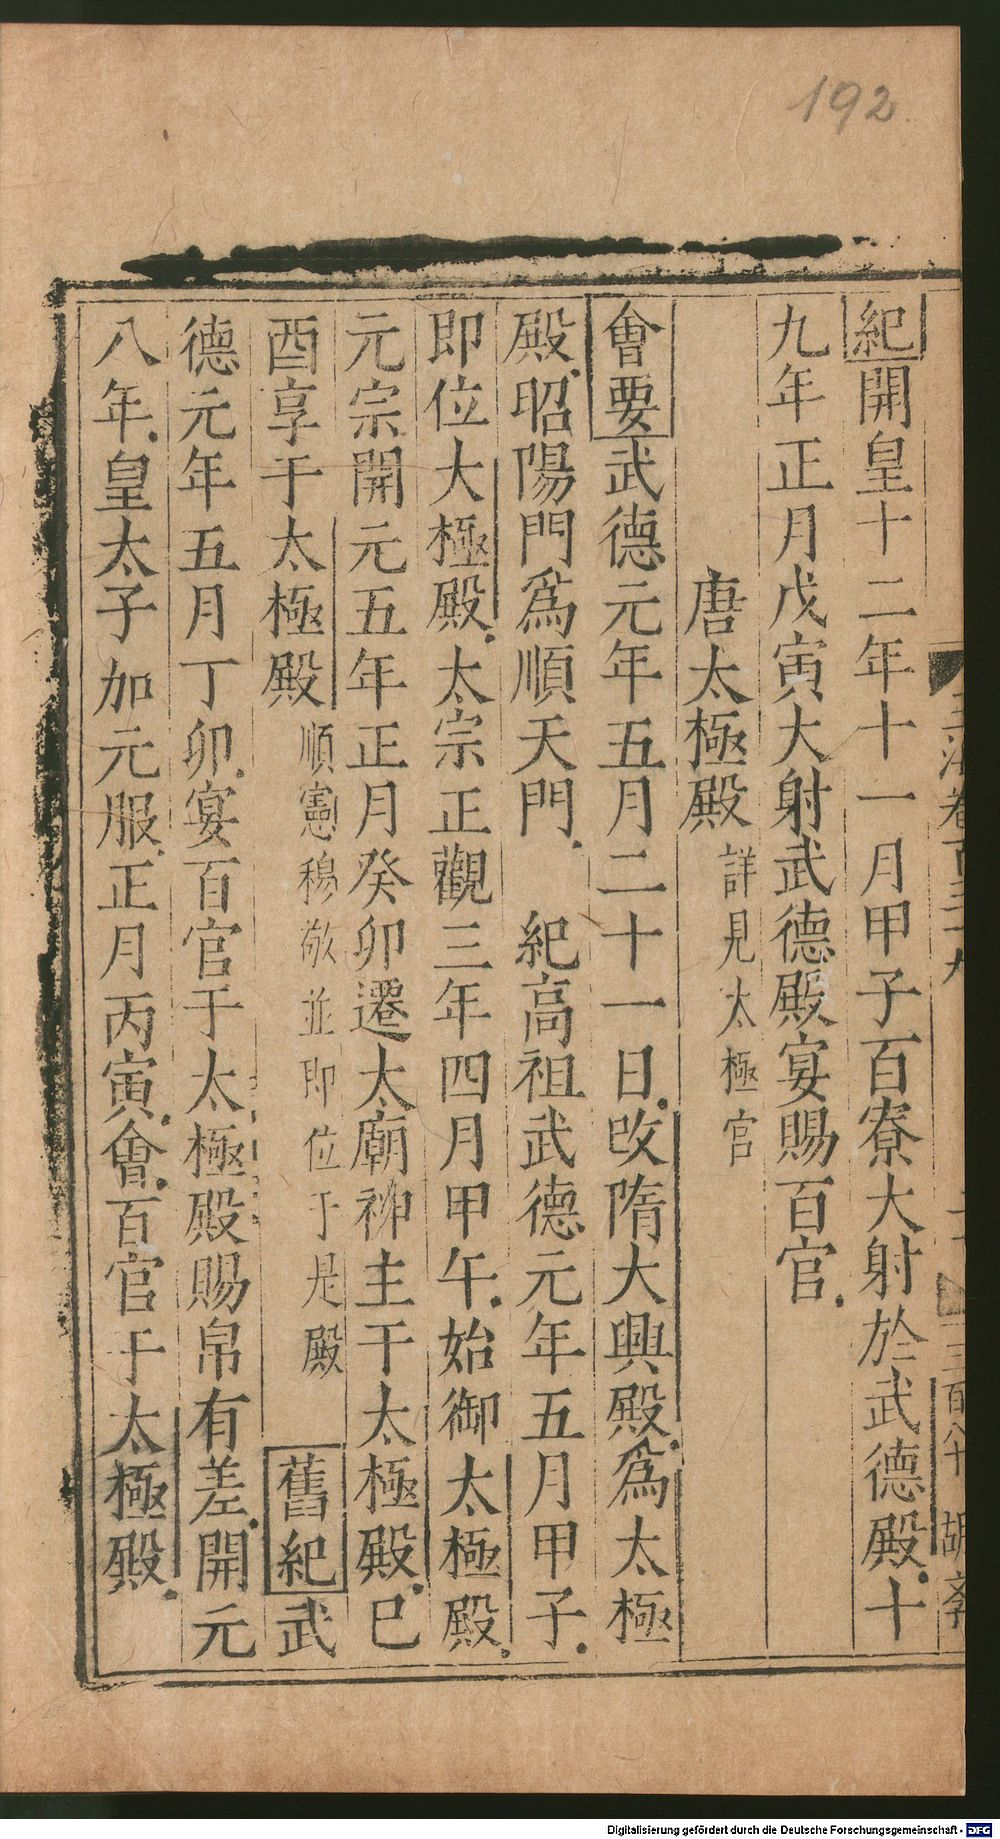 192
紀開皇十二年十一月甲子百寮大射於武德殿十
九年正月戊寅大射武德殿宴賜百官
唐太極殿詳見太極官
會要武德元年五月二十一日改隋大興殿爲太極
殿昭陽門爲順天門 紀高祖武德元年五月甲子
即位大極殿太宗正觀三年四月甲午始御太極殿
元宗開元五年正月癸卯遷太廟神主于太極殿巳
酉享于太極殿順憲穆敬並即位于是殿 舊紀武
德元年五月丁卯宴百官于太極殿賜帛有差開元
八年皇太子加元服正月丙寅會百官于太極殿
Digitalisierung gefördert durch die Deutsche Forschungsgemeinschaft - DFG